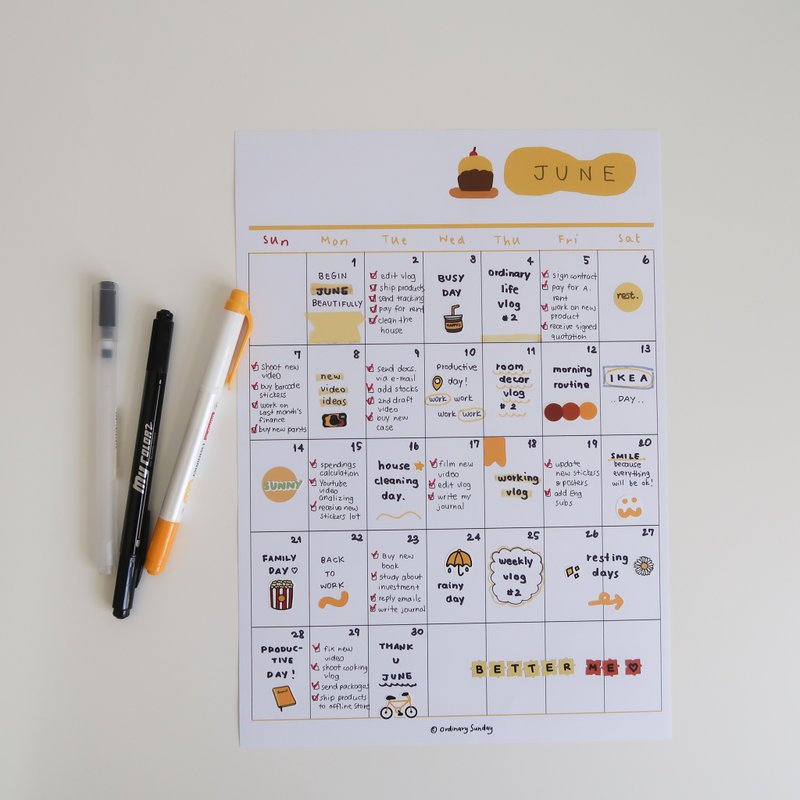 JUNE
Sun Mon Tue Wed Thu Fri Sat
1
BEGIN
JUNE
BEAUTIFULLY
2
edit vlog
ship products
send tracking
pay for rent
clean the
house
3
BUSY
DAY
4
ordinary
life
vlog
#2
5
sign contract
pay for A.
rent
work on new
product
receive signed
quotation
6
rest.
7
shoot new
video
buy barcode
stickers
work on
last month's
finance
buy new pants
8
new
video
ideas
9
send docs.
via e-mail
add stocks
2nd draft
video
buy new
case
10
productive
day!
work work
work work
11
room
decor
vlog
#2
12
morning
routine
13
IKEA
..DAY..
14
SUNNY
15
spendings
calculation
Youtube
video
analizing
receive new
stickers lot
16
house
cleaning
day.
17
film new
video
edit vlog
write my
journal
18
working
vlog
19
update
new stickers
& posters
add Eng
subs
20
SMILE
because
everything
will be ok!
21
FAMILY
DAY ♡
22
BACK
TO
WORK
23
Buy new
book
study about
investment
reply emails
write journal
24
rainy
day
25
weekly
vlog
#2
26 27
resting
days
28
PRODUC-
TIVE
DAY!
29
fix new
video
shoot cooking
vlog
send packages
ship products
to offline store
30
THANK
U
JUNE
BETTER ME ♡
© Ordinary Sunday
MY COLOR2